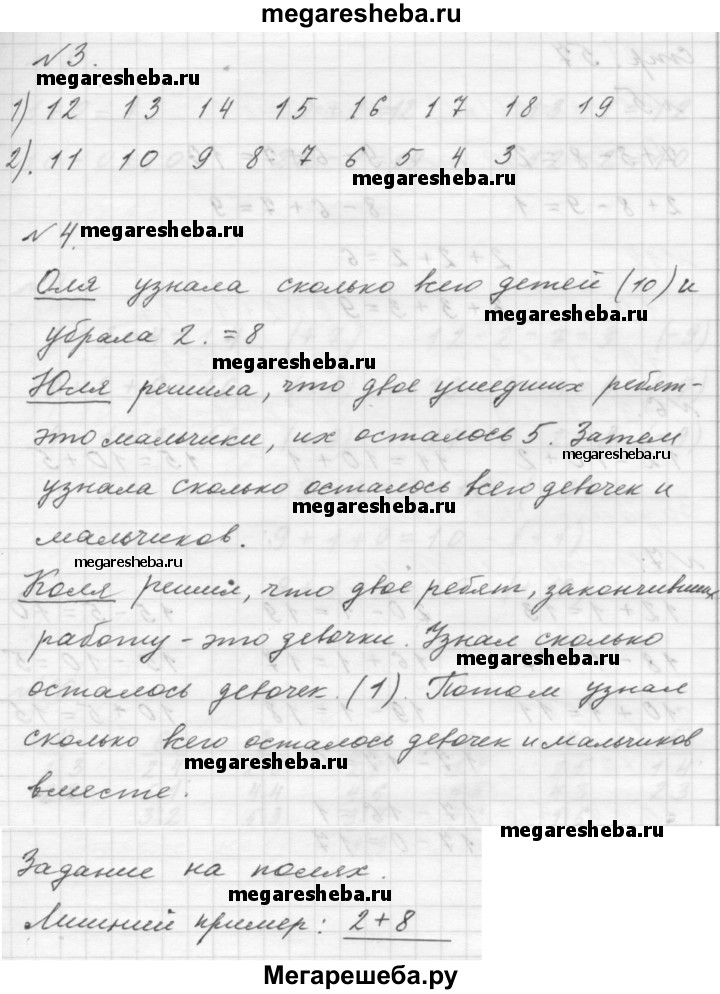 megaresheba.ru
№3.
megaresheba.ru
1) 12 13 14 15 16 17 18 19
2). 11 10 9 8 7 6 5 4 3
megaresheba.ru
№4. megaresheba.ru
Оля узнала сколько всего детей (10) и
megaresheba.ru
убрала 2. = 8
megaresheba.ru
Юля решила, что двое ушедших ребят-
это мальчики, их осталось 5. Затем
megaresheba.ru
узнала сколько осталось всего девочек и
megaresheba.ru
мальчиков.
megaresheba.ru
Коля решил, что двое ребят, закончивших
работу - это девочки. Узнал сколько
megaresheba.ru
осталось девочек. (1). Потом узнал
сколько всего осталось девочек и мальчиков
megaresheba.ru
вместе.
megaresheba.ru
Задание на полях.
megaresheba.ru
Лишний пример: 2+8
Мегарешеба.ру